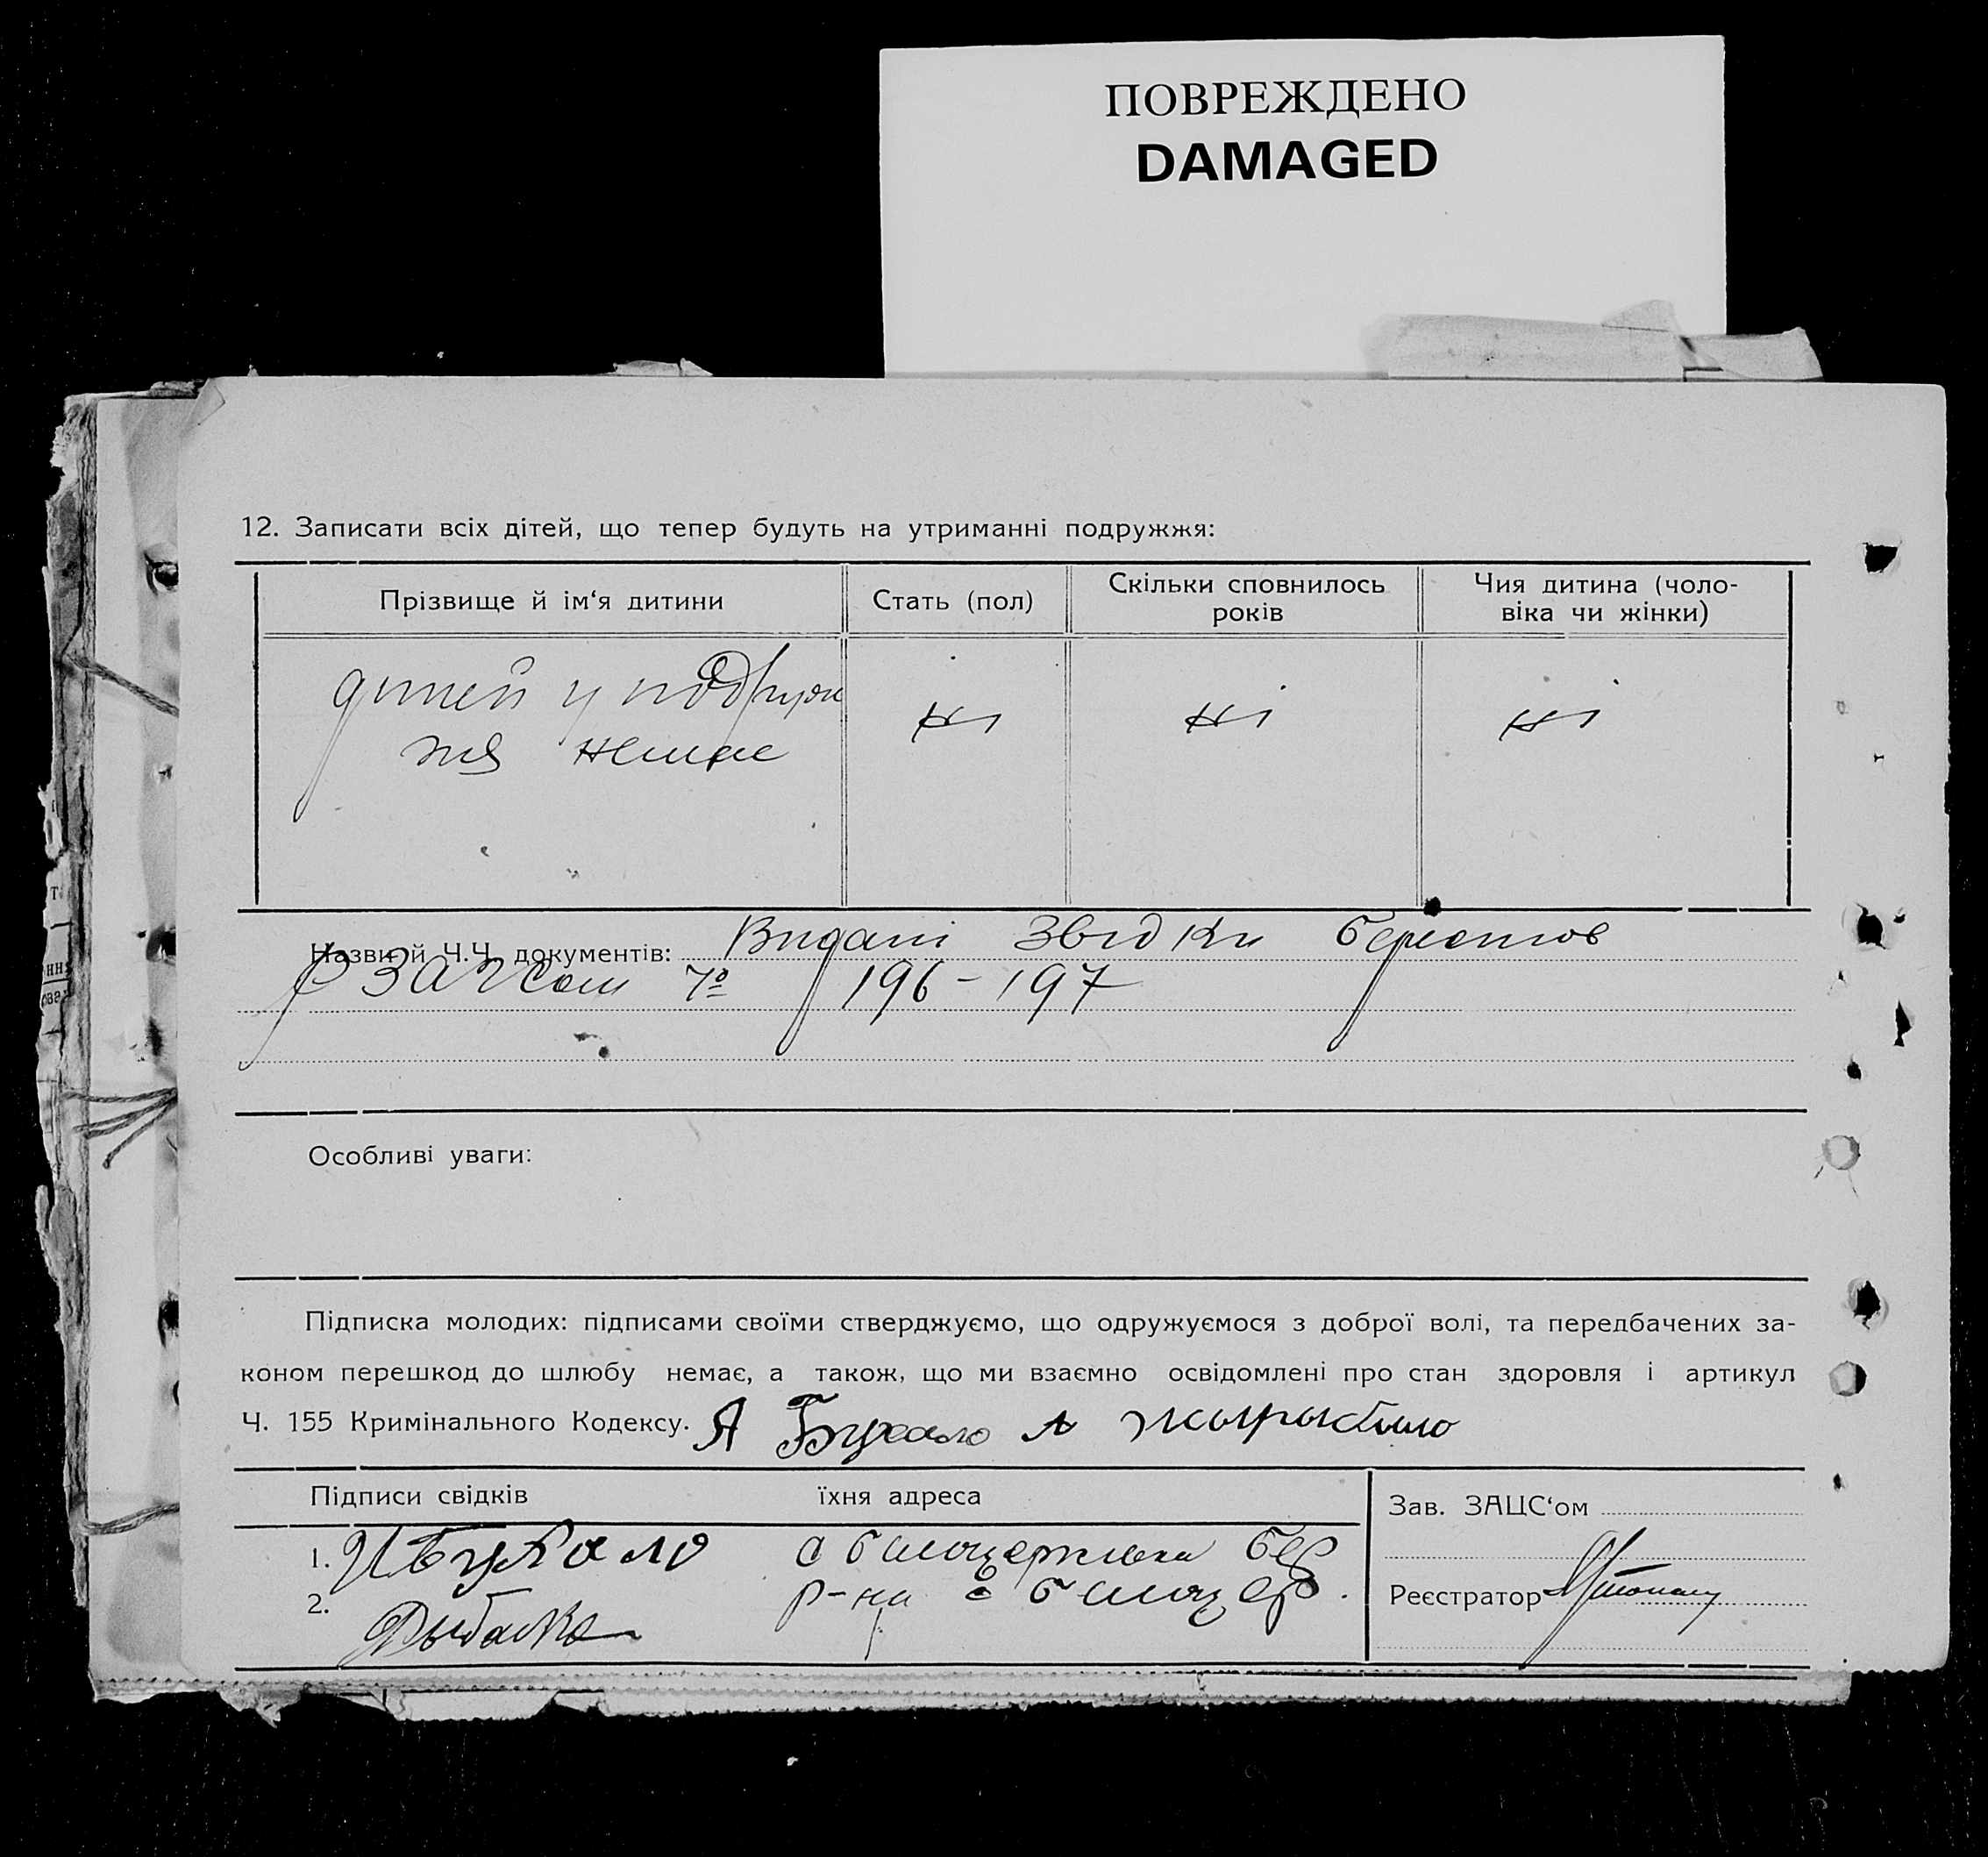 ПОВРЕЖДЕНО
DAMAGED
12. Записати всіх дітей, що тепер будуть на утриманні подружжя:
Прізвище й ім‘я дитини
Стать (пол)
Скільки сповнилось
років
Чия дитина (чоло-
віка чи жінки)
дитей у подруж
жя немае
ні
ні
ні
Назви й Ч.Ч. документів: Видані Звідки
196-197
Особливі уваги:
Підписка молодих: підписами своїми стверджуємо, що одружуємося з доброї волі, та передбачених за-
коном перешкод до шлюбу немає, а також, що ми взаємно освідомлені про стан здоров‌ля і артикул
Ч. 155 Кримінального Кодексу. А Бухало А
Підписи свідків
їхня адреса
Зав. ЗАЦС‘ом
1. с Билоцерківка Бер
2. р-на с Билоцер.
Рыбалка
Реєстратор